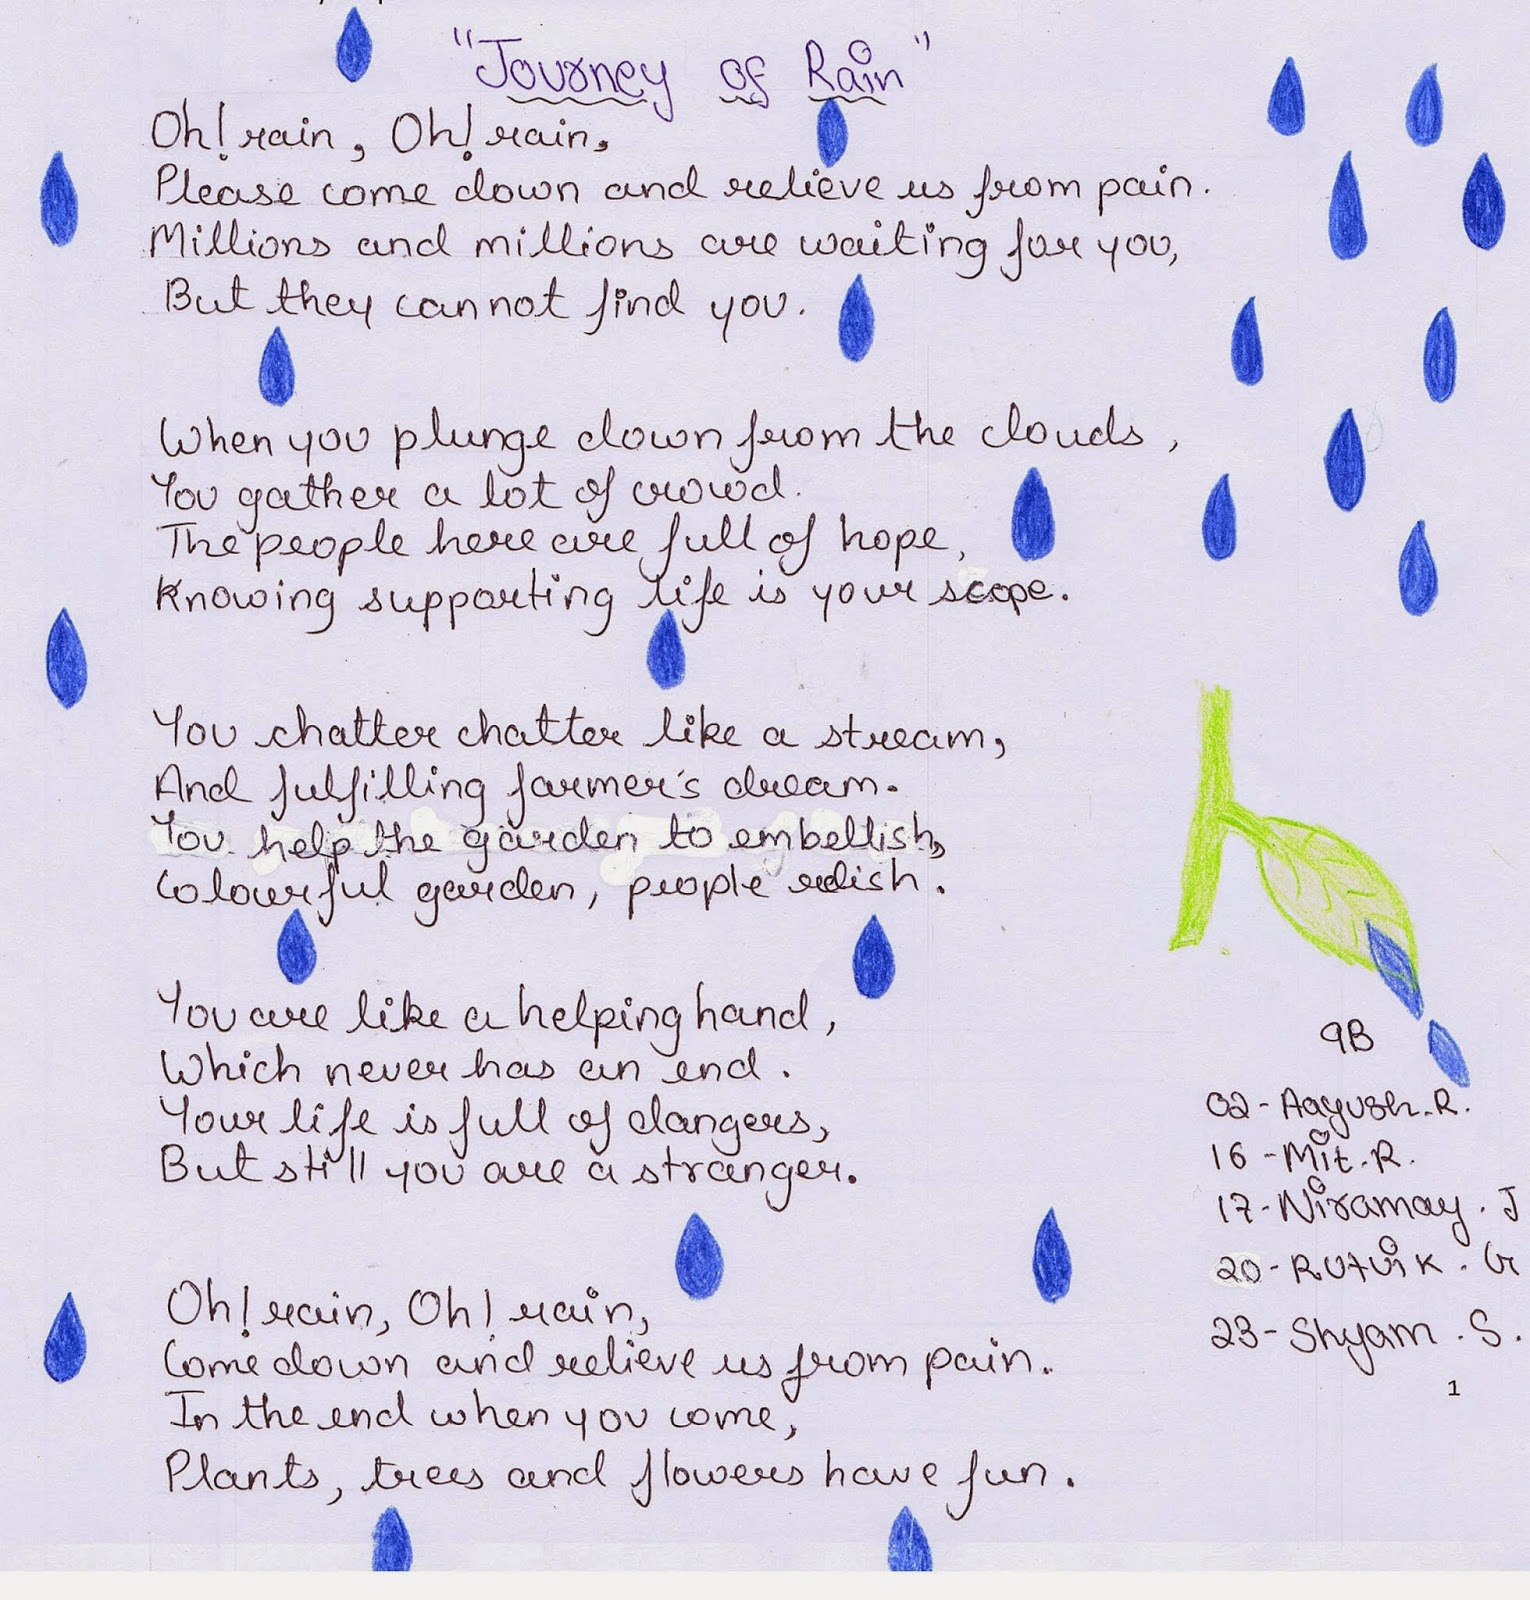 "Journey of Rain"
Oh! rain, Oh! rain,
Please come down and relieve us from pain.
Millions and millions are waiting for you,
But they cannot find you.
When you plunge down from the clouds,
You gather a lot of crowd.
The people here are full of hope,
Knowing supporting life is your scope.
You chatter chatter like a stream,
And fulfilling farmer's dream.
You help the garden to embellish,
Colourful garden, people relish.
You are like a helping hand,
Which never has an end.
Your life is full of dangers,
But still you are a stranger.
Oh! rain, Oh! rain,
Come down and relieve us from pain.
In the end when you come,
Plants, trees and flowers have fun.
9B
02-Aayush.R.
16-Mit.R.
17-Niramay.J
20-Rutvik.G
23-Shyam.S.
1